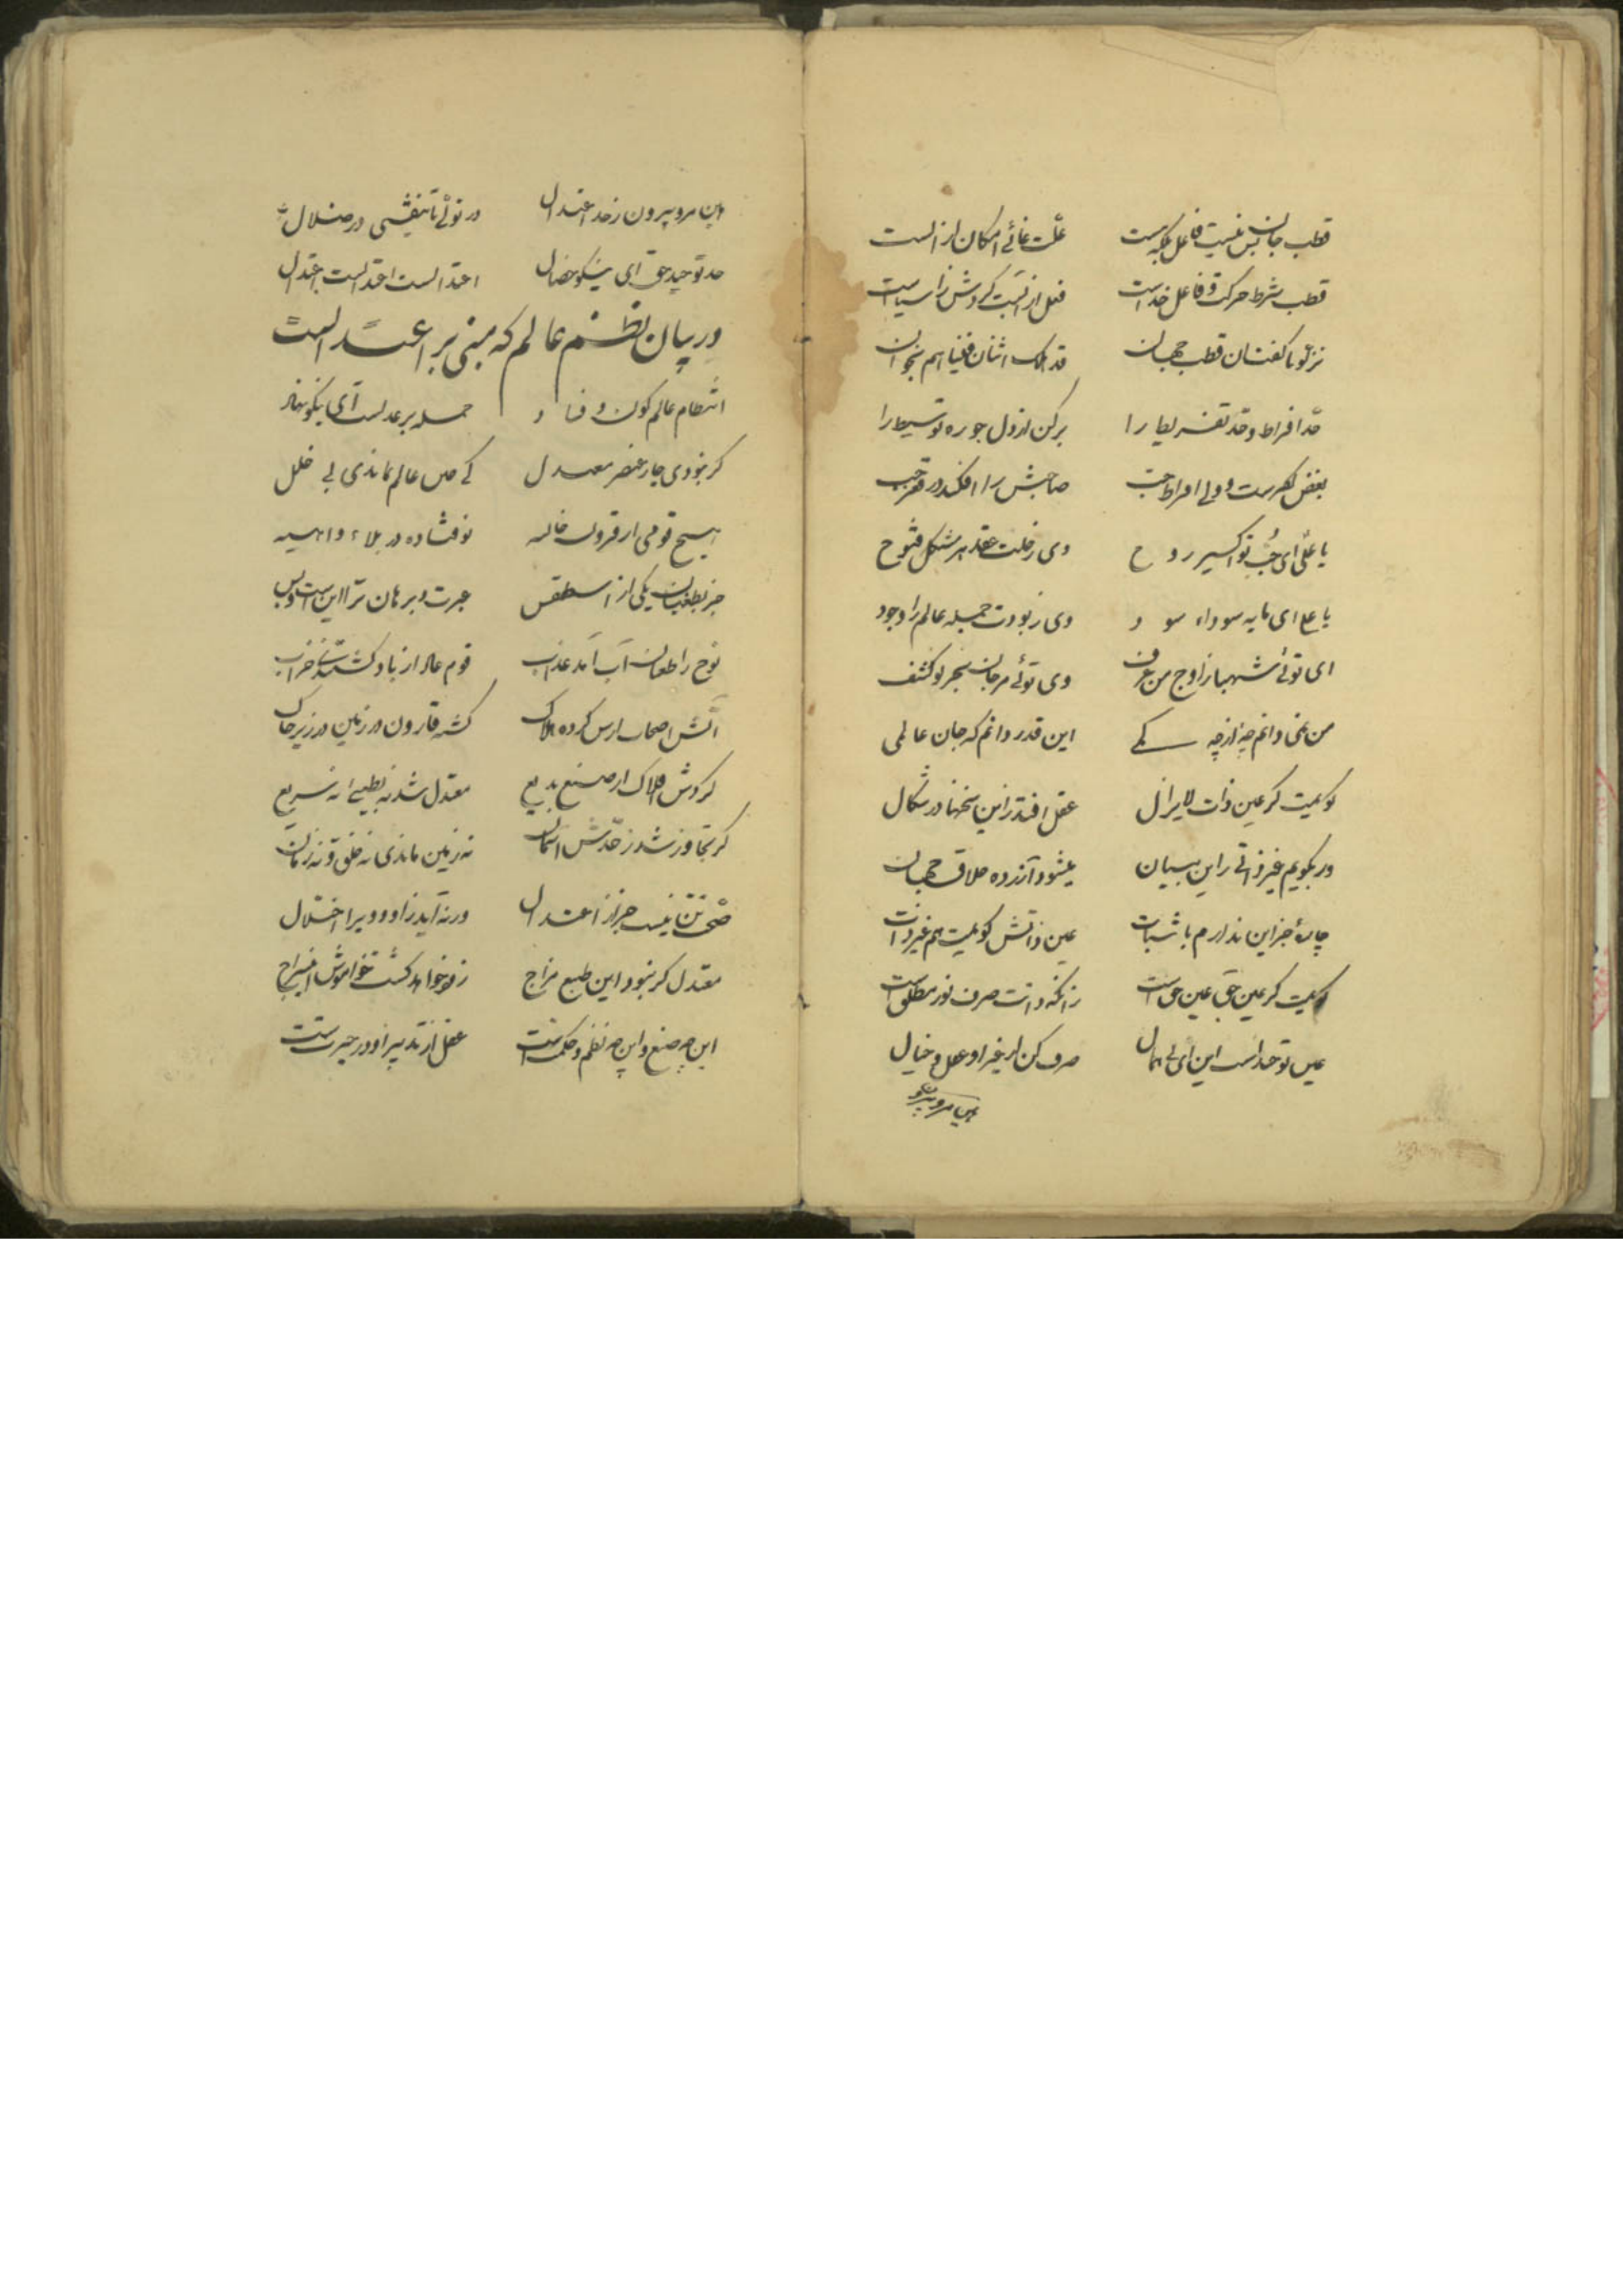 قطب جان بس نیست فاعل بلکه هست علّت غائے امکان از الست
قطب شرط حرکت و فاعل خداست فعل از
قطب جهان قد هلک اثنان فینا هم بخوان
حّد افراط و حّد تفریط را برکن از دل جو ره توسیط را
بغض کفرست ولی افراط حب صاحبش را افکند در قعر جب
یا علّی ای حُبّ تو اکسیر روح وی ز خلت عقد هر مشکل فتوح
یا علی ای مایه سوداء سود وی ز بودت جمله عالم را وجود
ای توئے شهباز اوج من عرف وی توئے مرجان بحر لو کشف
من نمی دانم چه از چه کے این قدر دانم که جان عالمی
کویمت کر عین ذات لایزال عقل افتد زاین سخنها در شکال
ور بکویم غیر ذاتے زاین بیان میشود آزرده خلاق جهان
چارهٔ جز این ندارم باثبات عین ذاتش کویمت هم غیر ذات
کویمت کر عین حق عین حق است زانکه ذاتت صرف نور مطلق است
عین توحید است این ای بی همال صرف کن از غیر او عقل و خیال
هین مرو بیرون
هین مرو بیرون ز حد اعتدال ور نه تا در ضلال
حد توحید حق ای نیکو خصال اعتدالست اعتدالست اعتدال
در بیان نظم عالم که مبنی بر اعتدالست
انتظام عالم کون و فساد جمله بر عدلست ای نیکو نهاد
کر نبودی چار عنصر معتدل کے عالم بماندی بی خلل
هیچ قومی از قرون خالیه نوفتاده در بلاء واهیه
جز بطغیان یکی از اسطقس عبرت و برهان ترا این است و بس
نوح را طوفان آب آمد عذاب قوم عاد از باد کشتند خراب
آتش اصحاب ارس کرده هلاک کشته قارون در زمین در زیر خاک
کردش افلاک از صنع بدیع معتدل شد نه بطیئ نه سریع
کر تجاوز شد ز حّدش آسمان نه زمین ماندی نه خلق و نه زمان
صّحت تن نیست جز از اعتدال ورنه آید زاو و ویرا اختلال
معتدل کر نبود این طبع مزاج زود خواهد کشت خواموش این سراج
این چه صنع و این چه نظم و حکمت است عقل از تدبیر او در حیرت است